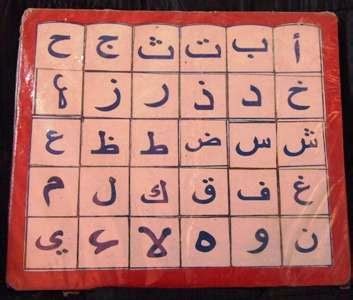 أ ب ت ث ج ح
خ د ذ ر ز
ش س ض ط ظ ع
غ ف ق ك ل م
ن و ه لا ء ي